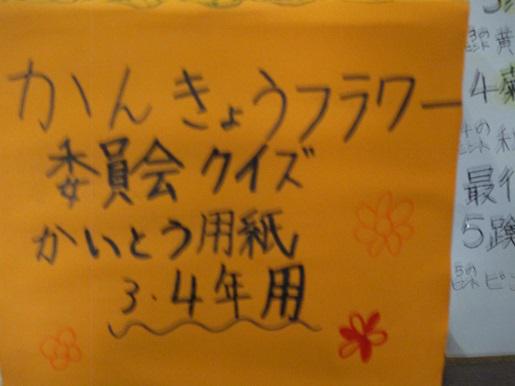 かんきょうフラワー
委員会クイズ
かいとう用紙
3・4年用
4
最
5